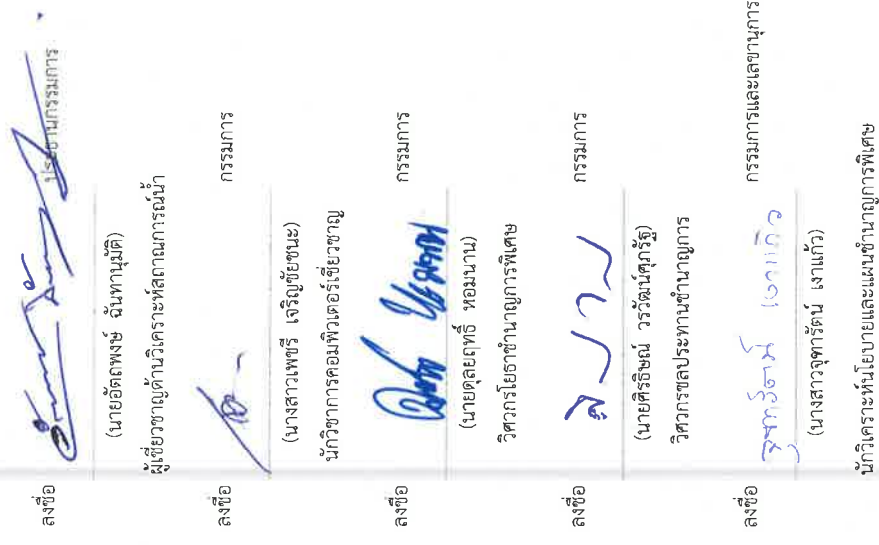 ลงชื่อ ประธานกรรมการ
(นายอัตถพงษ์ ฉันทานุมัติ)
ผู้เชี่ยวชาญด้านวิเคราะห์สถานการณ์น้ำ
ลงชื่อ กรรมการ
(นางสาวเพชรี เจริญชัยชนะ)
นักวิชาการคอมพิวเตอร์เชี่ยวชาญ
ลงชื่อ กรรมการ
(นายดุลยฤทธิ์ หอมนาน)
วิศวกรโยธาชำนาญการพิเศษ
ลงชื่อ กรรมการ
(นายศิรธิษณ์ วรวัฒน์ศุภรัฐ)
วิศวกรชลประทานชำนาญการ
ลงชื่อ จุฑารัตน์ เงาแก้ว กรรมการและเลขานุการ
(นางสาวจุฑารัตน์ เงาแก้ว)
นักวิเคราะห์นโยบายและแผนชำนาญการพิเศษ